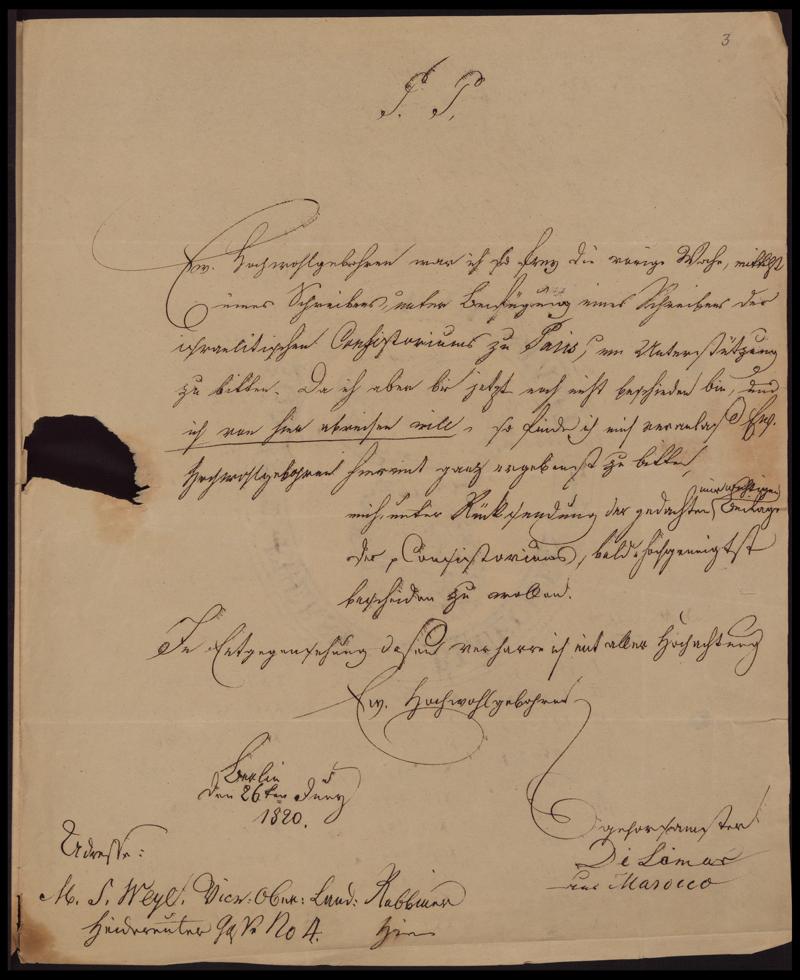 3
P. P.
Ew. Hochwohlgebohren war ich so frey die vorige Woche, mittelst
eines Schreibens, unter Beifügung eines Schreibens des
israelitischen Consistoriums zu Paris, um Unterstützung
zu bitten. Da ich aber bis jetzt noch nicht beschieden bin, und
ich von hier abreisen will, so finde ich mich veranlaßt Ew.
Hochwohlgebohren hiermit ganz ergebenst zu bitten,
mich, unter Rücksendung der gedachten Beilage
des Consistoriums, bald hochgeneigtst
bescheiden zu wollen.
In Entgegensehung dessen verharre ich mit aller Hochachtung
Ew. Hochwohlgebohren
Berlin
den 26ten Juny
1820.
gehorsamster
De Limas
aus Marocco
Adresse:
M. S. Weyl. Vice-Ober-Land-Rabbiner
Heidereuter No 4. Hier